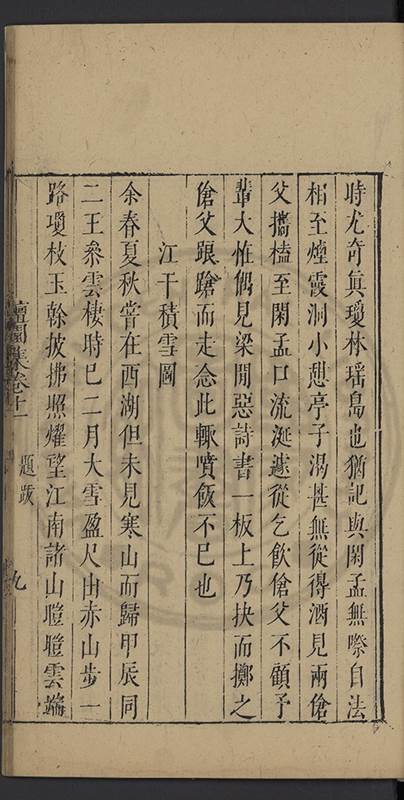 時尤奇眞瓊林瑶島也猶記與閑孟無際自法
相至煙霞洞小憇亭子渴甚無從得酒見兩傖
父攜榼至閑孟口流涎遽從乞飲傖父不顧予
輩大恠偶見梁間惡詩書一板上乃抉而擲之
傖父踉蹌而走念此輙噴飯不已也
江干積雪圖
余春夏秋嘗在西湖但未見寒山而歸甲辰同
二王參雲棲時已二月大雪盈尺由赤山步一
路瓊枝玉榦披拂照燿望江南諸山皚皚雲端
檀園集卷十一
題跋
九